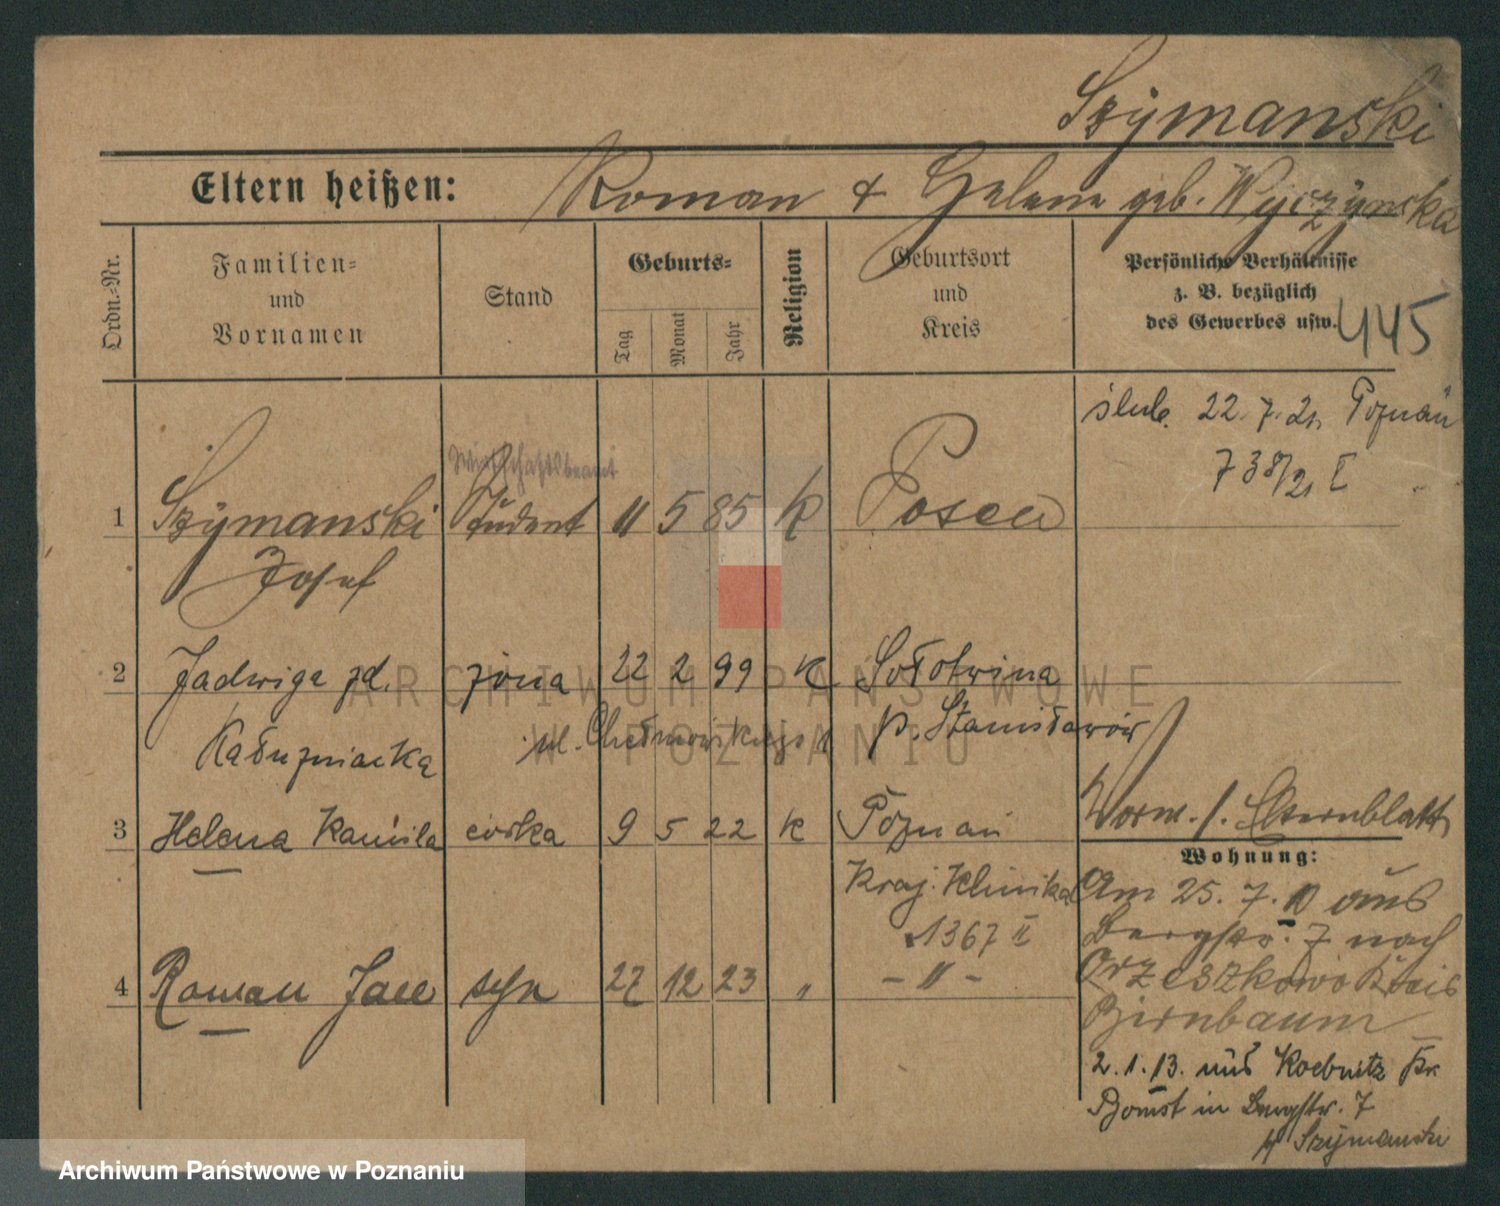 Szymanski
Eltern heißen: Roman & Helene geb. Wyczynska
Ordn.-Nr.
Familien-
und
Vornamen
Stand
Geburts-
Tag
Monat
Jahr
Religion
Geburtsort
und
Kreis
Persönliche Verhältnisse
z. B. bezüglich
des Gewerbes usw.
445
ślub. 22.7.21. Poznań
738/21 I
Wirtschaftsbeamt
1 Szymanski Student 11 5 85 k Posen
Josef
2 Jadwiga zd. żona 22 2 99 K Sołotwina
Kałuzniacka ul. Chełmońskiego p. Stanisławów
3 Helena Kamila córka 9 5 22 K Poznań
Vorm. s. Elternblatt
Wohnung:
Kraj. Klinika
1367 II
4 Roman Jace syn 27 12 23 " - " -
Am 25.7.10 aus
Bergstr. 7 nach
Orzeszkowo Kreis
Birnbaum
2.1.13. aus Koebnitz Kr.
Bomst in Bergstr. 7
Szymanski
ARCHIWUM PAŃSTWOWE
W POZNANIU
Archiwum Państwowe w Poznaniu